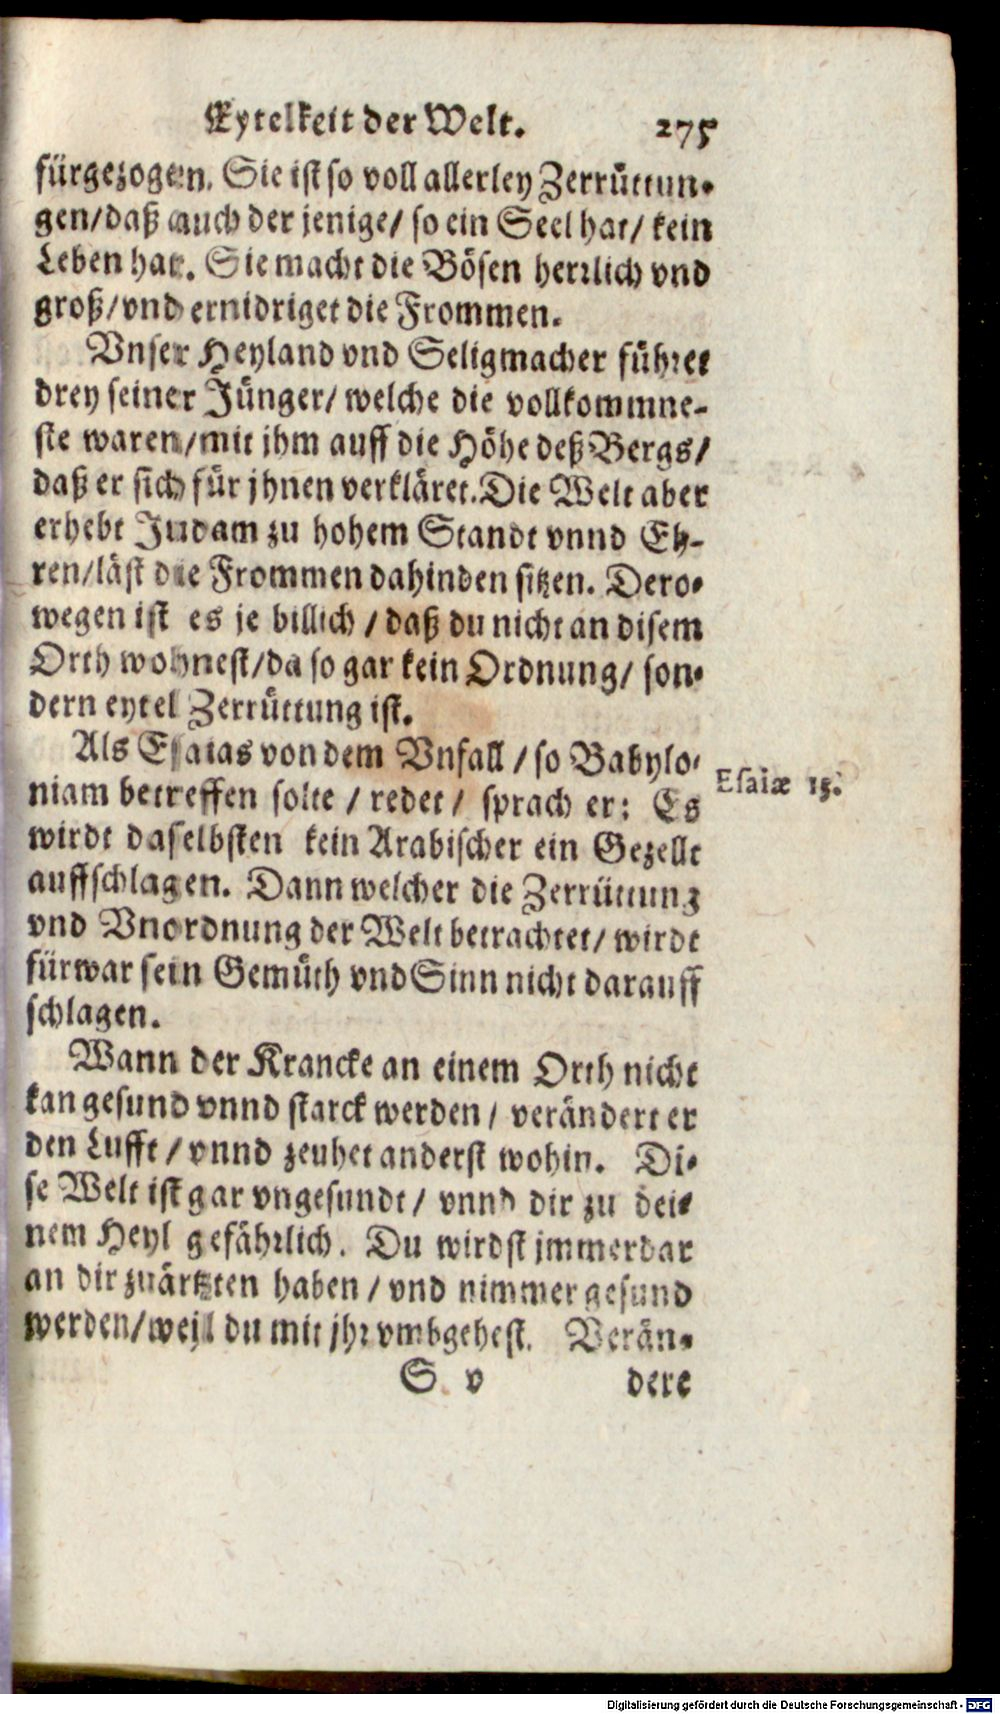 Eytelkeit der Welt. 275
fürgezogen. Sie ist so voll allerley Zerrüttun-
gen/daß auch der jenige/ so ein Seel hat/ kein
Leben hat. Sie macht die Bösen herrlich vnd
groß/vnd ernidriget die Frommen.
Vnser Heyland vnd Seligmacher führet
drey seiner Jünger/ welche die vollkommne-
ste waren/mit jhm auff die Höhe deß Bergs/
daß er sich für jhnen verkläret. Die Welt aber
erhebt Judam zu hohem Standt vnnd Eh-
ren/läst die Frommen dahinden sitzen. Dero-
wegen ist es je billich / daß du nicht an disem
Orth wohnest/da so gar kein Ordnung/ son-
dern eytel Zerrüttung ist.
Als Esaias von dem Vnfall / so Babylo-
Esaiæ 13.
niam betreffen solte / redet / sprach er: Es
wirdt daselbsten kein Arabischer ein Gezellt
auffschlagen. Dann welcher die Zerrüttung
vnd Vnordnung der Welt betrachtet/ wirdt
fürwar sein Gemüth vnd Sinn nicht darauff
schlagen.
Wann der Krancke an einem Orth nicht
kan gesund vnnd starck werden / verändert er
den Lufft / vnnd zeuhet anderst wohin. Di-
se Welt ist gar vngesundt / vnnd dir zu dei-
nem Heyl gefährlich. Du wirdst jmmerdar
an dir zuärtzten haben / vnd nimmer gesund
werden/weil du mit jhr vmbgehest. Verän-
S v dere
Digitalisierung gefördert durch die Deutsche Forschungsgemeinschaft - DFG